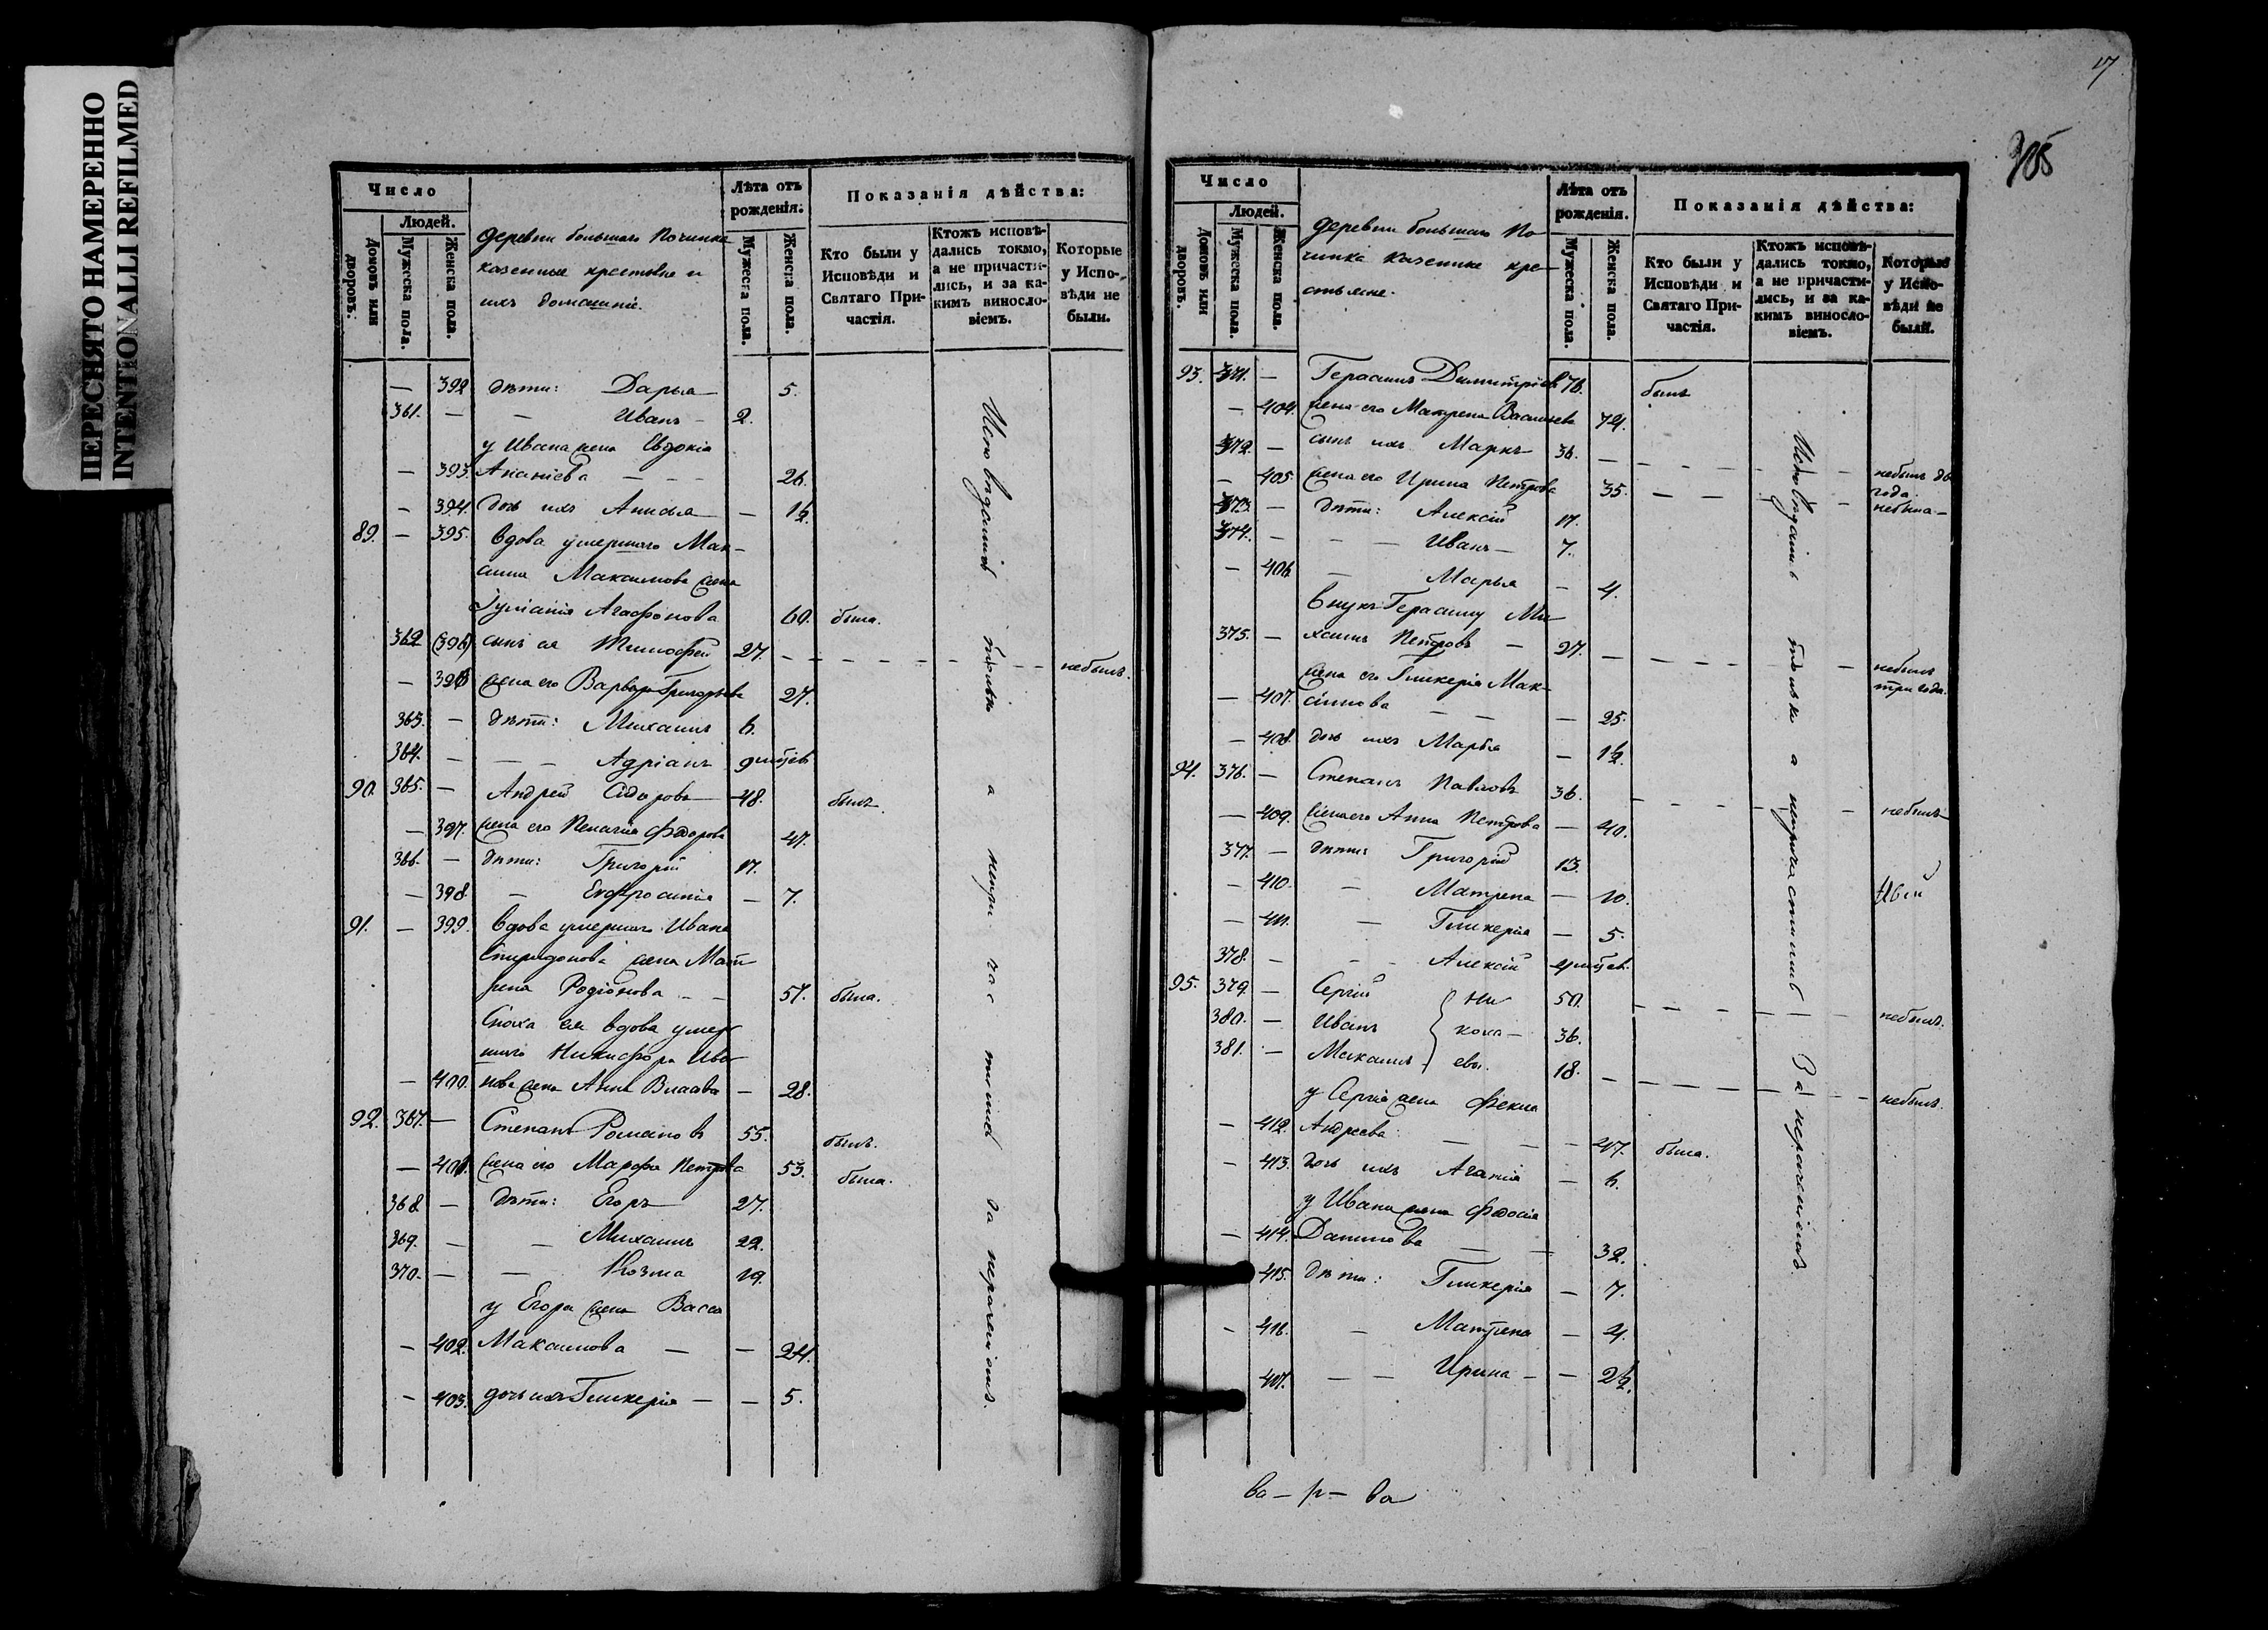 ПЕРЕСНЯТО НАМЕРЕННО
INTENTIONALLI REFILMED
Число
Людей.
Домовъ или дворовъ.
Мужеска пола.
Женска пола.
деревни большаго Починка
казенные крестьяне и
ихъ домашніе.
Лѣта отъ рожденія.
Мужеска пола.
Женска пола.
Показанія дѣйства:
Кто были у Исповѣди и Святаго Причастія.
Ктожъ исповѣдались токмо, а не причастились, и за какимъ винословіемъ.
Которые у Исповѣди не были.
— 392 дѣти: Дарья 5.
361. — — Иванъ — 2.
у Ивана жена Евдокія
— 393. Ананіева — — — 26.
— 394. дочь ихъ Анисья — — 1½
89. — 395. вдова умершаго Мак-
сима Максимова жена
Іуліанія Агафонова 60. была.
362 (396) сынъ ея Тимофей 27. — — — — — небылъ.
— 396 жена его Варвара Григорьева 27.
363. — дѣти: Михаилъ 6.
364. — — — Адріанъ 9 мѣсяц.
90. 365. — Андрей Сидоровъ 48. былъ.
— 397. жена его Пелагія Федорова 47.
366. — дѣти: Григорій 17.
— 398. — Евфросинія — 7.
91. — 399. вдова умершаго Ивана
Спиридонова жена Мат-
рена Родіонова — — 57. была.
Сноха ея вдова умер-
шаго Никифора Ива-
— 400. нова жена Анна Власова — 28.
92. 367. — Степанъ Романовъ 55. былъ.
— 401. жена его Марфа Петрова 53. была.
368. — дѣти: Егоръ 27.
369. — — Михаилъ 22.
370. — — Козма 19.
у Егора жена Васса
— 402. Максимова — — 24.
— 403. дочь ихъ Гликерія — — 5.
Исповѣдались только а непричастились за нераченіемъ.
17
305
Число
Людей.
Домовъ или дворовъ.
Мужеска пола.
Женска пола.
деревни большаго По-
чинка казенные кре-
стьяне.
Лѣта отъ рожденія.
Мужеска пола.
Женска пола.
Показанія дѣйства:
Кто были у Исповѣди и Святаго Причастія.
Ктожъ исповѣдались токмо, а не причастились, и за какимъ винословіемъ.
Которые у Исповѣди не были.
93. 371. — Герасимъ Димитріевъ 76. былъ
— 404. жена его Матрена Васильева 74.
372. — сынъ ихъ Маркъ 36. — — — — — небылъ два года.
— 405. жена его Ирина Петрова 35. — — — — небыла —
373. — дѣти: Алексій 17.
374. — — — Иванъ — 7.
— 406. — Марья — 4.
внукъ Герасиму Ми-
375. — хаилъ Петровъ — 27. — — — — — небылъ три года.
жена его Гликерія Мак-
— 407. симова — — — 25.
— 408. дочь ихъ Марья — 1½.
94. 376. — Степанъ Павловъ 36. — — — — — небылъ
— 409. жена его Анна Петрова — 40.
377. — дѣти: Григорій 13.
— 410. — Матрена — 10.
— 411. — Гликерія — 5.
378. — — — Алексій 4 мѣсяц.
95. 379. — Сергій } Ни 50. — — — — — небылъ.
380. — Иванъ } кола- 36.
381. — Михаилъ } евы. 18. — — — — — небылъ.
у Сергія жена Фекла
— 412. Андреева — — — 47. была.
— 413. дочь ихъ Агапія — 6.
у Ивана жена Федосія
— 414. Данилова — — 32.
415. дѣти: Гликерія — 7.
— 416. — Матрена — 4.
417. — — Ирина — — 2½.
Исповѣдались только а непричастились За нераченіемъ.
ва — р — ва